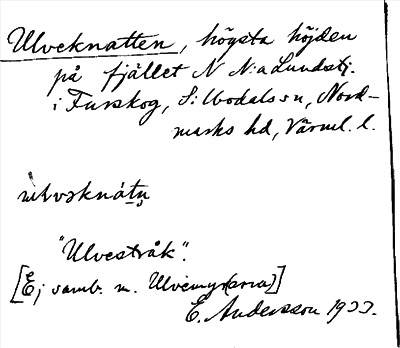 Ulveknatten, högsta höjden
på fjället N N:a Lundstj.
i Furskog, Sillbodals sn, Nord-
marks hd, Värml. l.
"Ulvestråk".
[Ej samb. m. Ulvemyr(arna)]
E. Andersson 1933.